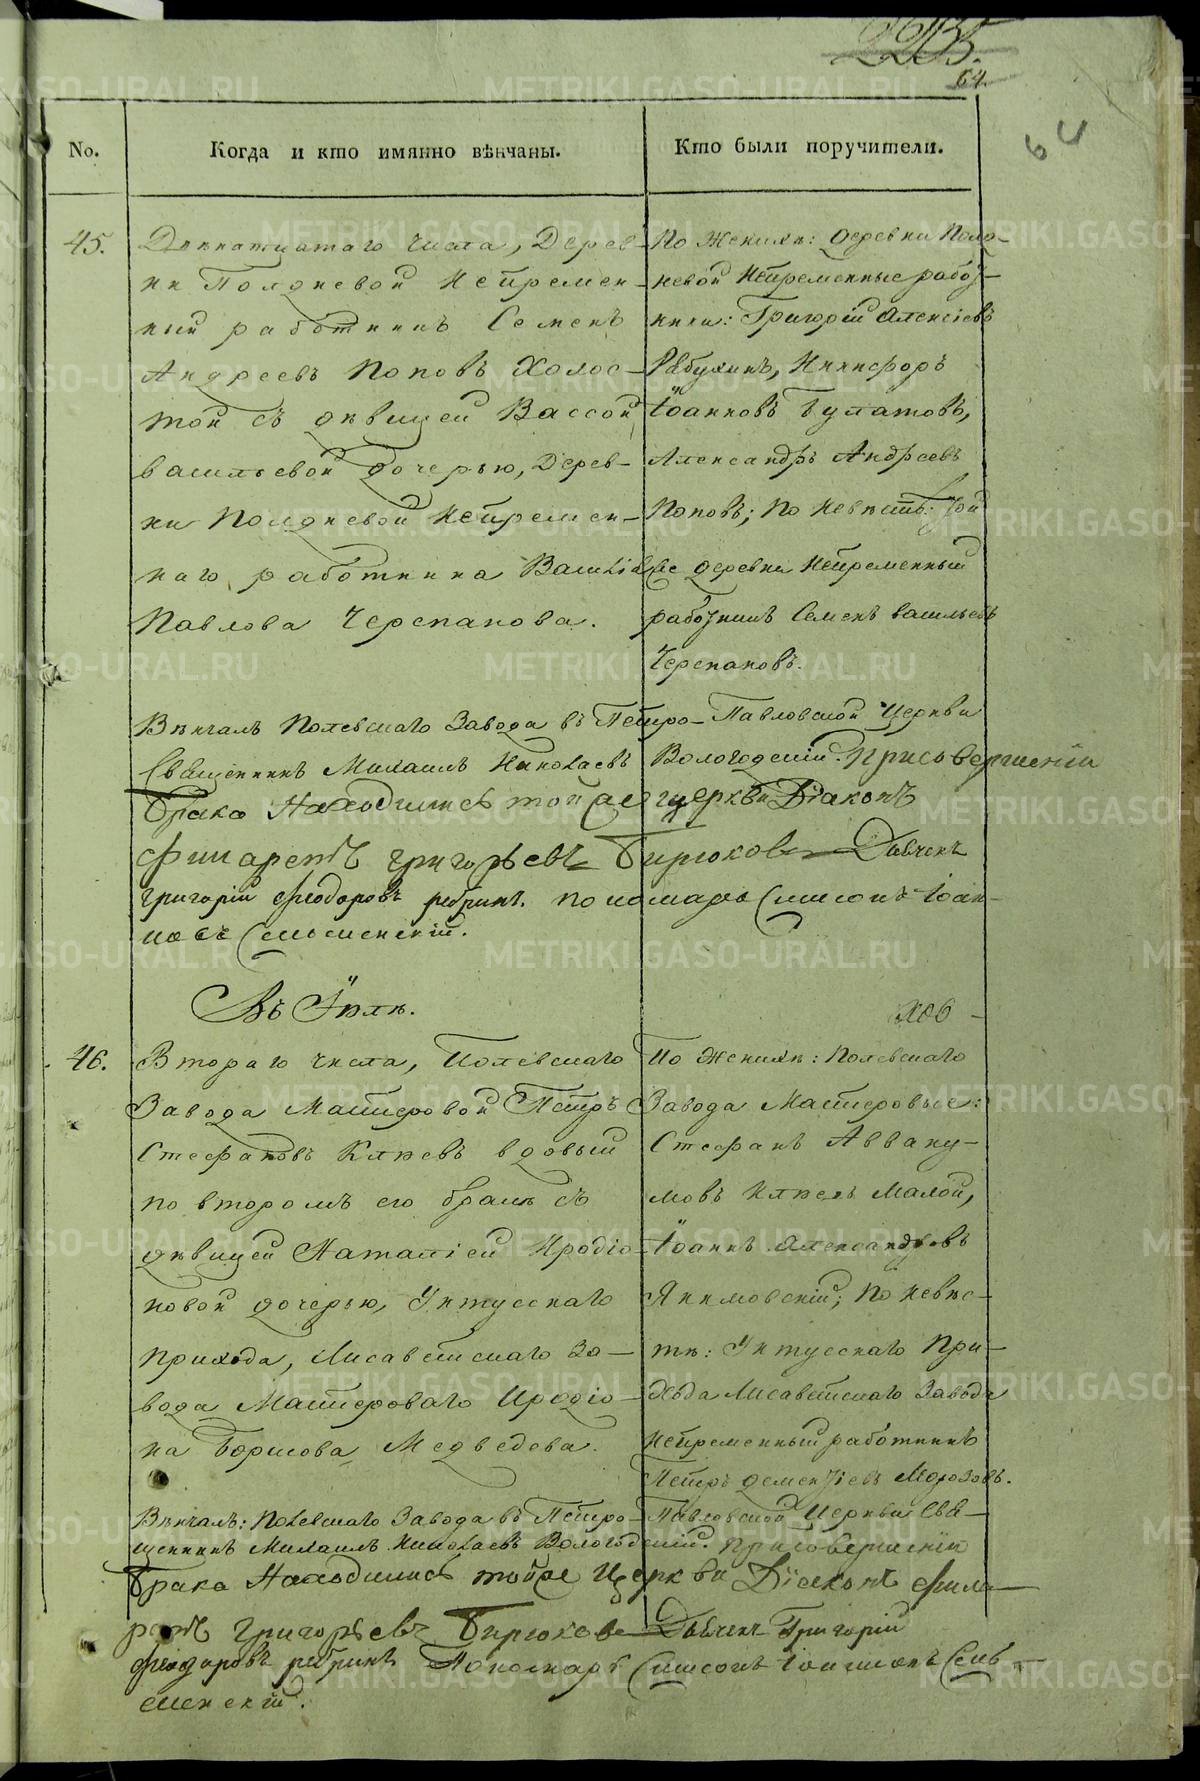 64.
No.
Когда и кто имянно вѣнчаны.
Кто были поручители.
45.
Двенатцатаго числа, Дерев-
ни Полдневой Непремен-
ный работникъ Семенъ
Андреевъ Поповъ Холос-
той съ дѣвицей Вассой
Васильевой дочерью, Дерев-
ни Полдневой Непремен-
наго работника Василія
Павлова Черепанова.
По Женихѣ: деревни Полд-
невой Непременные работ-
ники: Григорій Алексіевъ
Рябухинъ, Никифоръ
Іоанновъ Булатовъ,
Александръ Андреевъ
Поповъ; По Невѣстѣ: той
же деревни Непременный
работникъ Семенъ Васильевъ
Черепановъ.
Вѣнчалъ Полевскаго Завода въ Петро-Павловской Церкви
Священникъ Михаилъ Николаевъ Вологодскій. При совершеніи
брака Находились той же церкви Діаконъ
Филаретъ григорьевъ Бирюковъ Дьячекъ
григорій Феодоровъ пономарь Симеонъ Іоан-
новъ
Въ Іюлѣ.
46.
Втораго числа, Полевскаго
Завода Мастеровой Петръ
Стефановъ Клюевъ вдовый
по второмъ его бракѣ съ
дѣвицей Наталіей Иродіо-
новой дочерью, Уктусскаго
прихода, Лисаветскаго За-
вода Мастероваго Иродіо-
на Борисова Медведева.
По Женихѣ: Полевскаго
Завода Мастеровые:
Стефанъ Авваку-
мовъ Клюевъ Малой,
Іоаннъ Александровъ
Якимовскій; По Невѣс-
тѣ: Уктусскаго При-
хода Лисаветскаго Завода
Непременный работникъ
Петръ Дементіевъ Морозовъ.
Вѣнчалъ: Полевскаго Завода въ Петро-Павловской Церкви Свя-
щенникъ Михаилъ Николаевъ Вологодскій. При совершеніи
брака Находились той же Церкви Діаконъ Фила-
ретъ григорьевъ Бирюковъ Дьячекъ Григорій
Феодоровъ Пономарь Симеонъ